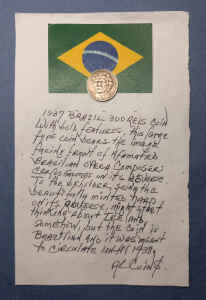 1937 BRAZIL 300 REIS COIN
With bold features, this large
type coin bears the image
facing front of Afamated
Brazilian Opera Composer
Carlos Gomes on its reverse.
To the beholder, seeing the
beautifully minted harp
on its obverse, might start
thinking about Ireland
somehow, but the coin is
Brazilian and it was meant
to circulate until 1938.
AC Coins